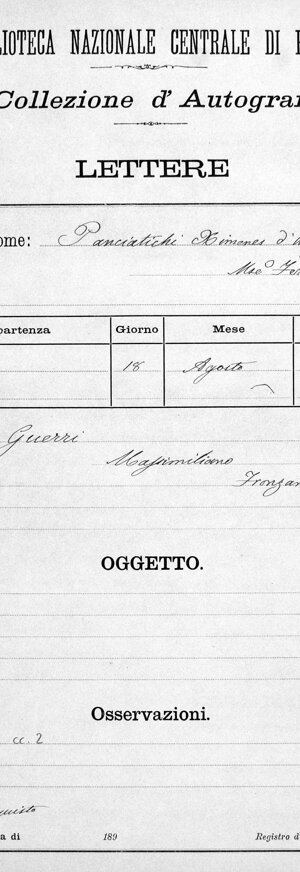 LIOTECA NAZIONALE CENTRALE DI F
Collezione d' Autogra
LETTERE
ome: Panciatichi Ximenes d'
Mse
partenza Giorno Mese
18 Agosto
Guerri
Massimiliano
Fronzan
OGGETTO.
Osservazioni.
cc. 2
a di 189 Registro d